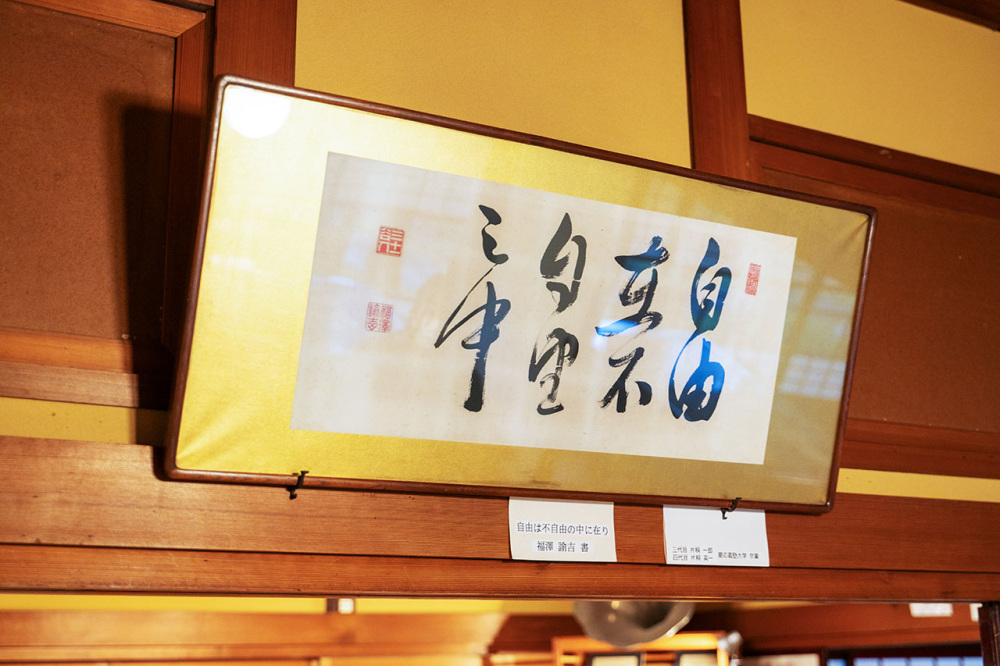 自由
在不
自由
之中
福澤諭吉
自由は不自由の中に在り
福澤 諭吉 書
三代目
四代目
慶応義塾大学 卒業